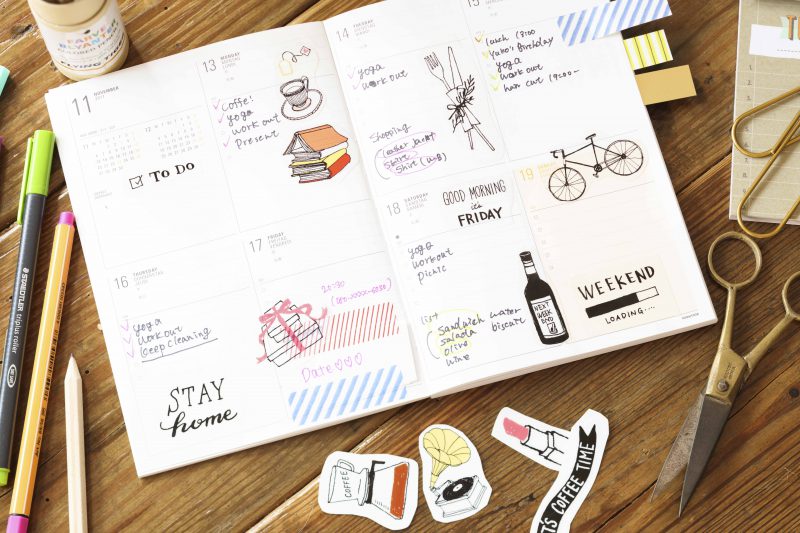 11
NOVEMBER
TO DO
13
MONDAY
coffe!
yoga
work out
present
14
TUESDAY
yoga
work out
Shopping
Shirt
Shirt (U.S)
15
lunch 13:00
Yuko's Birthday
yoga
work out
hair cut 19:00~
16
THURSDAY
yoga
work out
deep cleaning
STAY
home
17
FRIDAY
20:30
Date♡♡♡
18
SATURDAY
GOOD MORNING
it's
FRIDAY
yoga
workout
picnic
list
Sandwich water
salada biscuit
olive
wine
NEXT
WEEK
END
19
WEEKEND
LOADING....
STAEDTLER
triplus roller
COFFEE
T'S COFFEE TIME